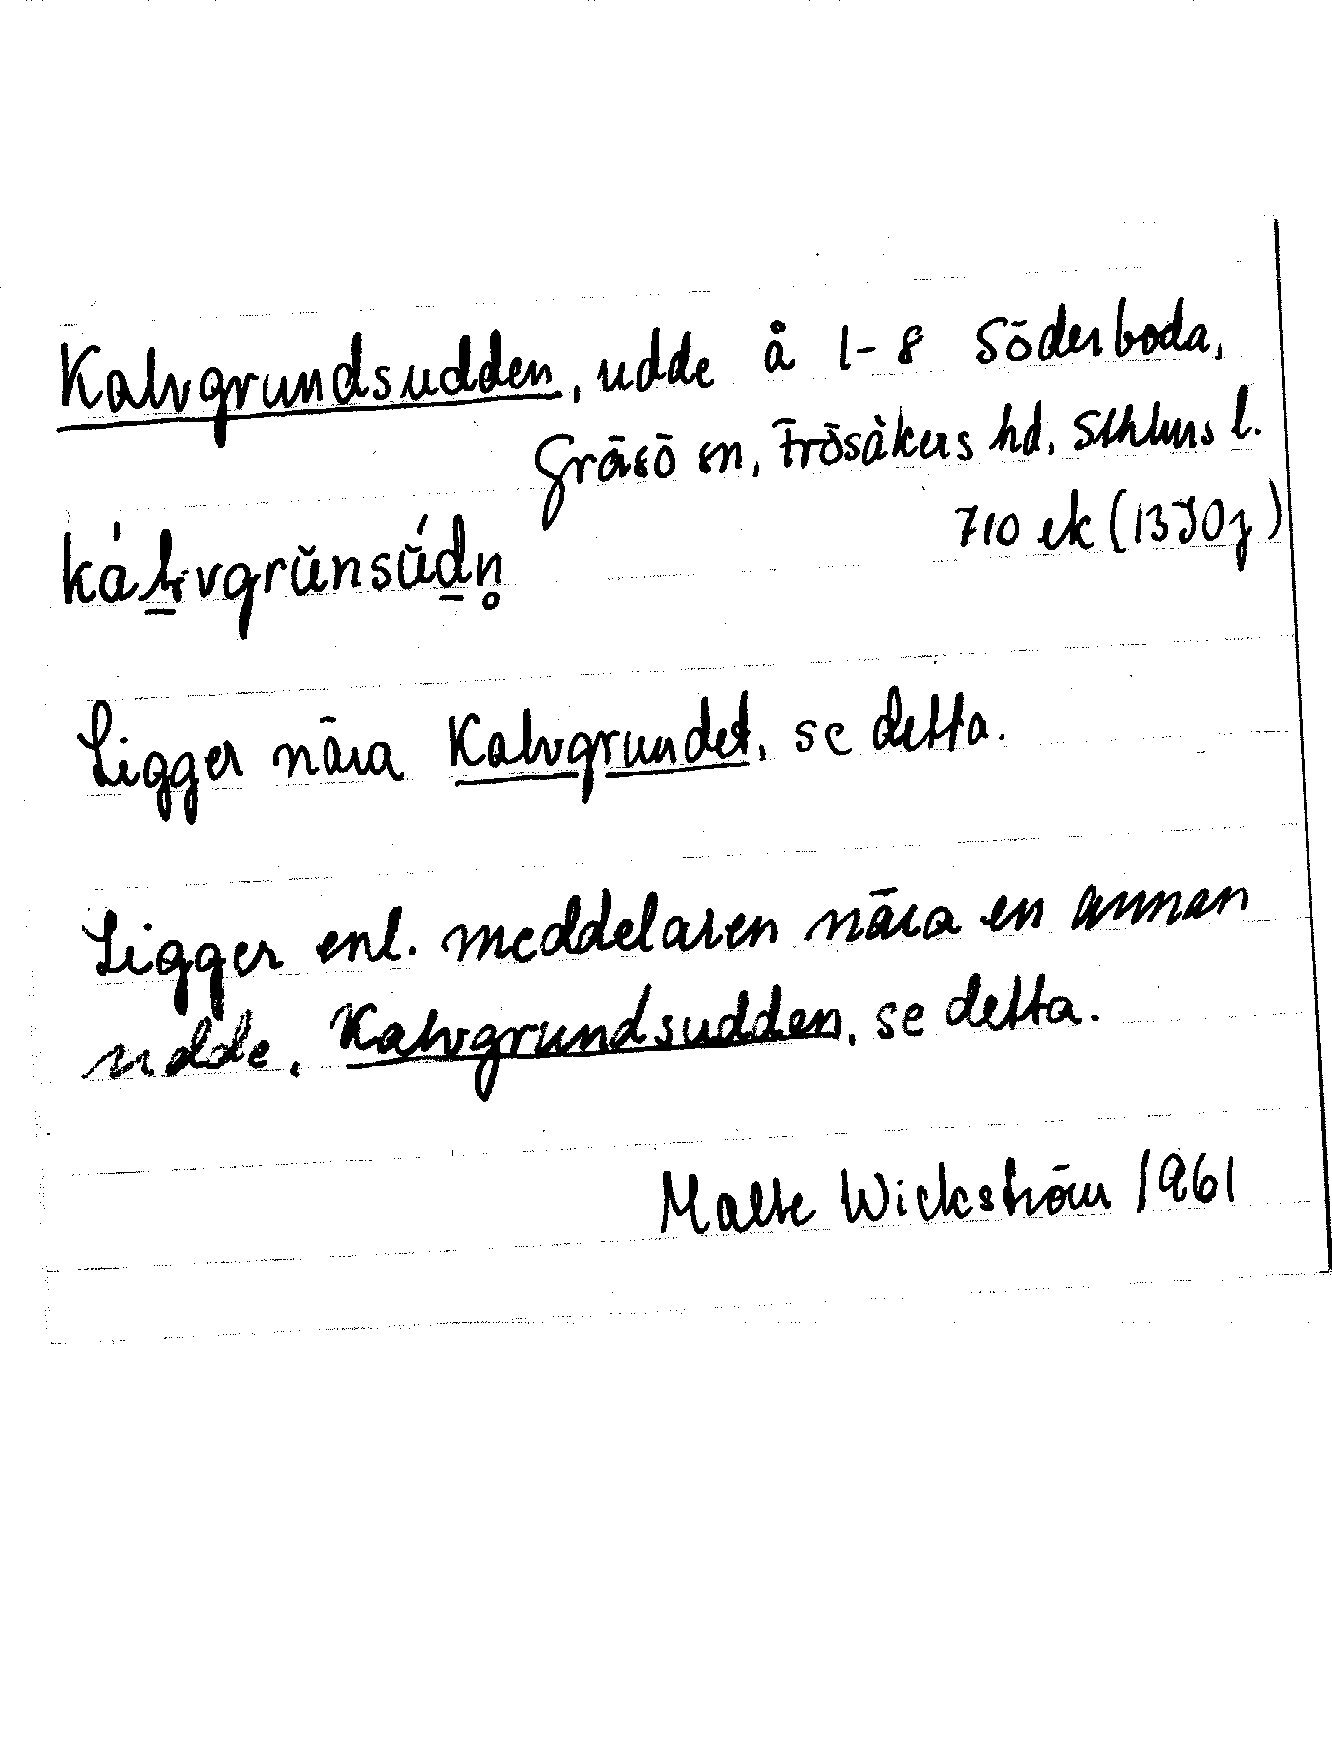 Kalvgrundsudden, udde å 1-8 Söderboda,
Gräsö sn, Frösåkers hd, Sthlms l.
710 ek (13I0j)
Ligger nära Kalvgrundet, se detta.
Ligger enl. meddelaren nära en annan
udde, Kalvgrundsudden, se detta.
Malte Wickström 1961